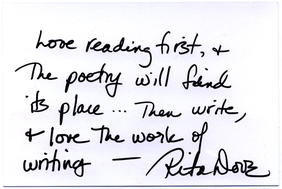 Love reading first, &
The poetry will find
its place... Then write,
& love The work of
writing — Rita Dove